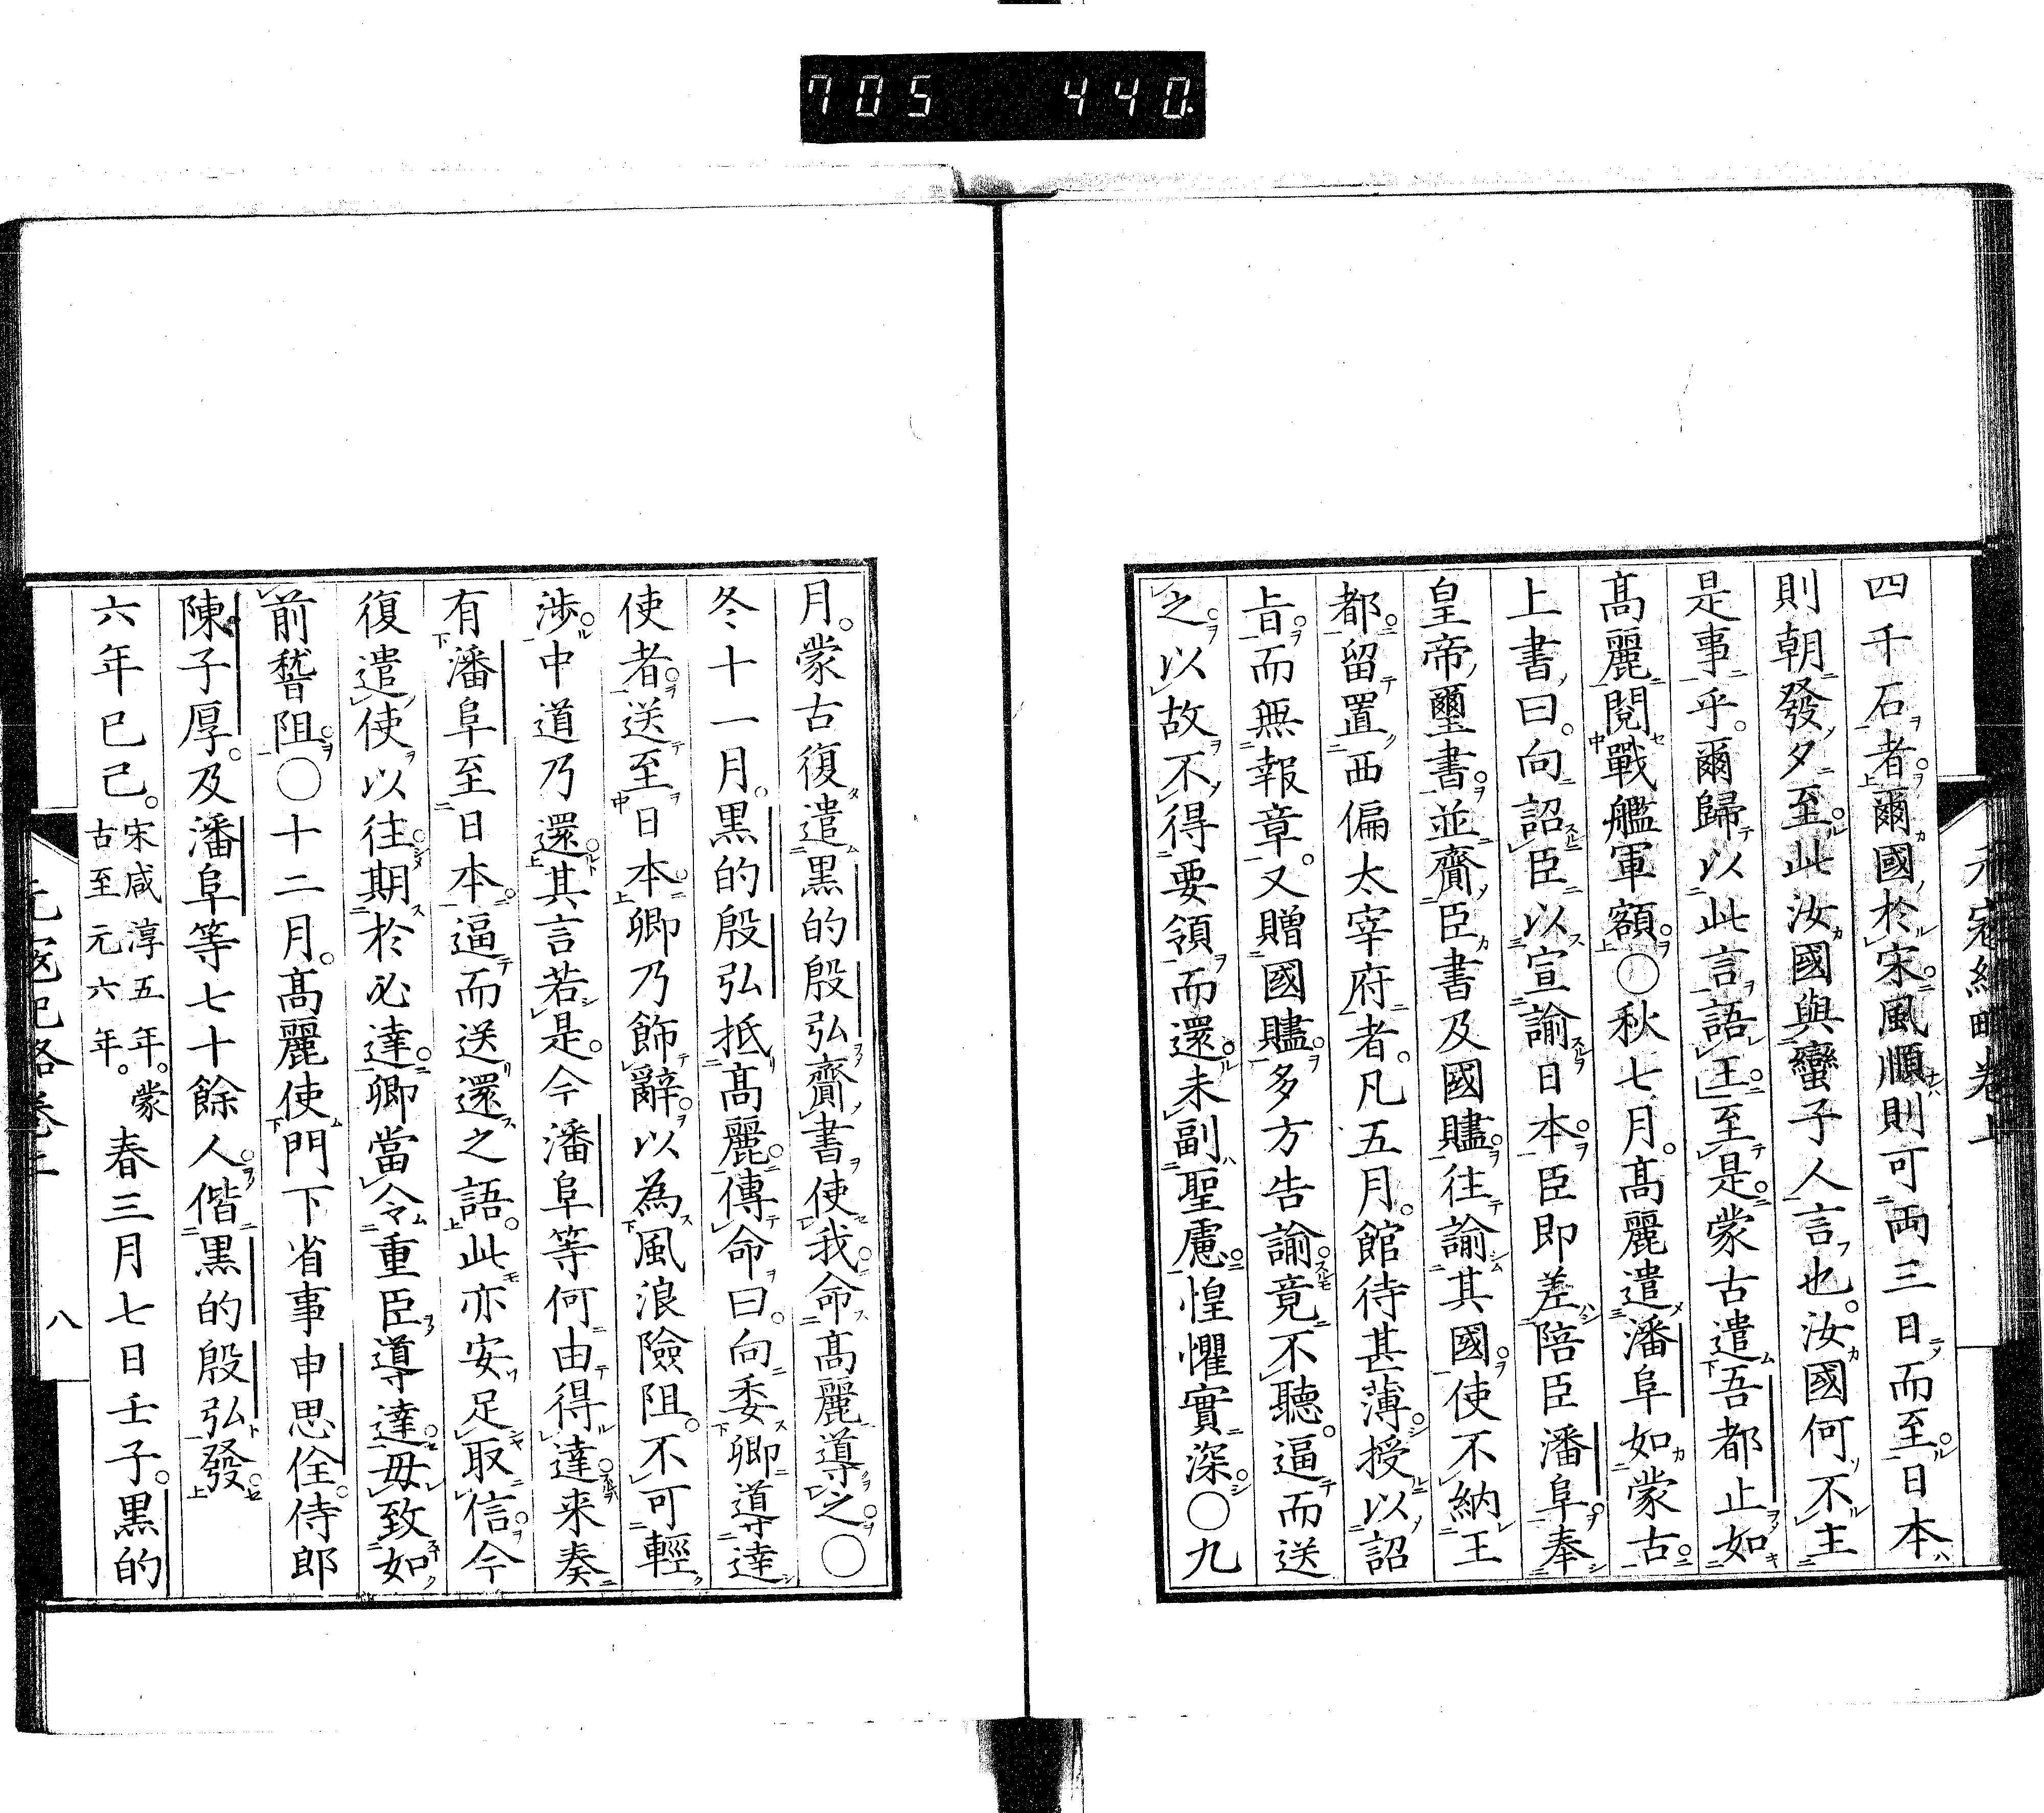 705 440.
元寇紀畧卷上
四千石者爾國於宋風順則可兩三日而至日本
則朝發夕至此汝國與蠻子人言也汝國何不主
是事乎爾歸以此言語王至是蒙古遣吾都止如
髙麗閱戰艦軍額○秋七月髙麗遣潘阜如蒙古
上書曰向詔臣以宣諭日本臣即差陪臣潘阜奉
皇帝璽書並齎臣書及國贐往諭其國使不納王
都留置西偏太宰府者凡五月館待甚薄授以詔
旨而無報章又贈國贐多方告諭竟不聽逼而送
之以故不得要領而還未副聖慮惶懼實深○九
月蒙古復遣黒的殷弘齎書使我命髙麗導之○
冬十一月黒的殷弘抵髙麗傳命曰向委卿導達
使者送至日本卿乃飾辭以為風浪險阻不可輕
涉中道乃還其言若是今潘阜等何由得達来奏
有潘阜至日本逼而送還之語此亦安足取信今
復遣使以往期於必達卿當令重臣導達毋致如
前稽阻○十二月髙麗使門下省事申思佺侍郎
陳子厚及潘阜等七十餘人偕黒的殷弘發
六年己巳宋咸淳五年蒙古至元六年春三月七日壬子黒的
元寇紀畧卷上
八